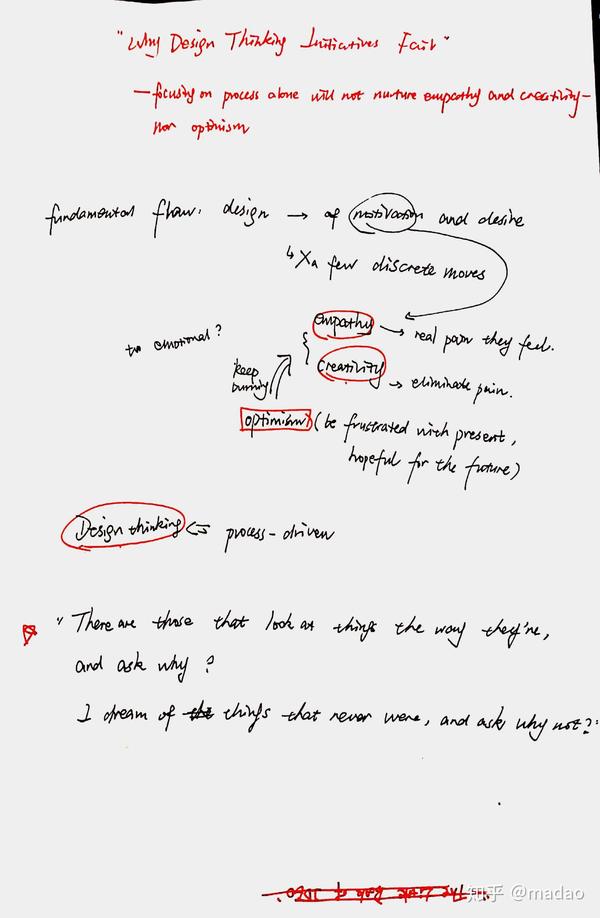 "Why Design Thinking Initiatives Fail"
— focusing on process alone will not nurture empathy and creativity —
nor optimism
fundamental flaw: design → of motivation and desire
↳ X a few discrete moves
too emotional?
empathy → real pain they feel.
keep burning
Creativity → eliminate pain.
optimism (be frustrated with present,
hopeful for the future)
Design thinking <= process-driven
" There are those that look at things the way they're,
and ask why?
I dream of the things that never were, and ask why not?"
知乎 @madao